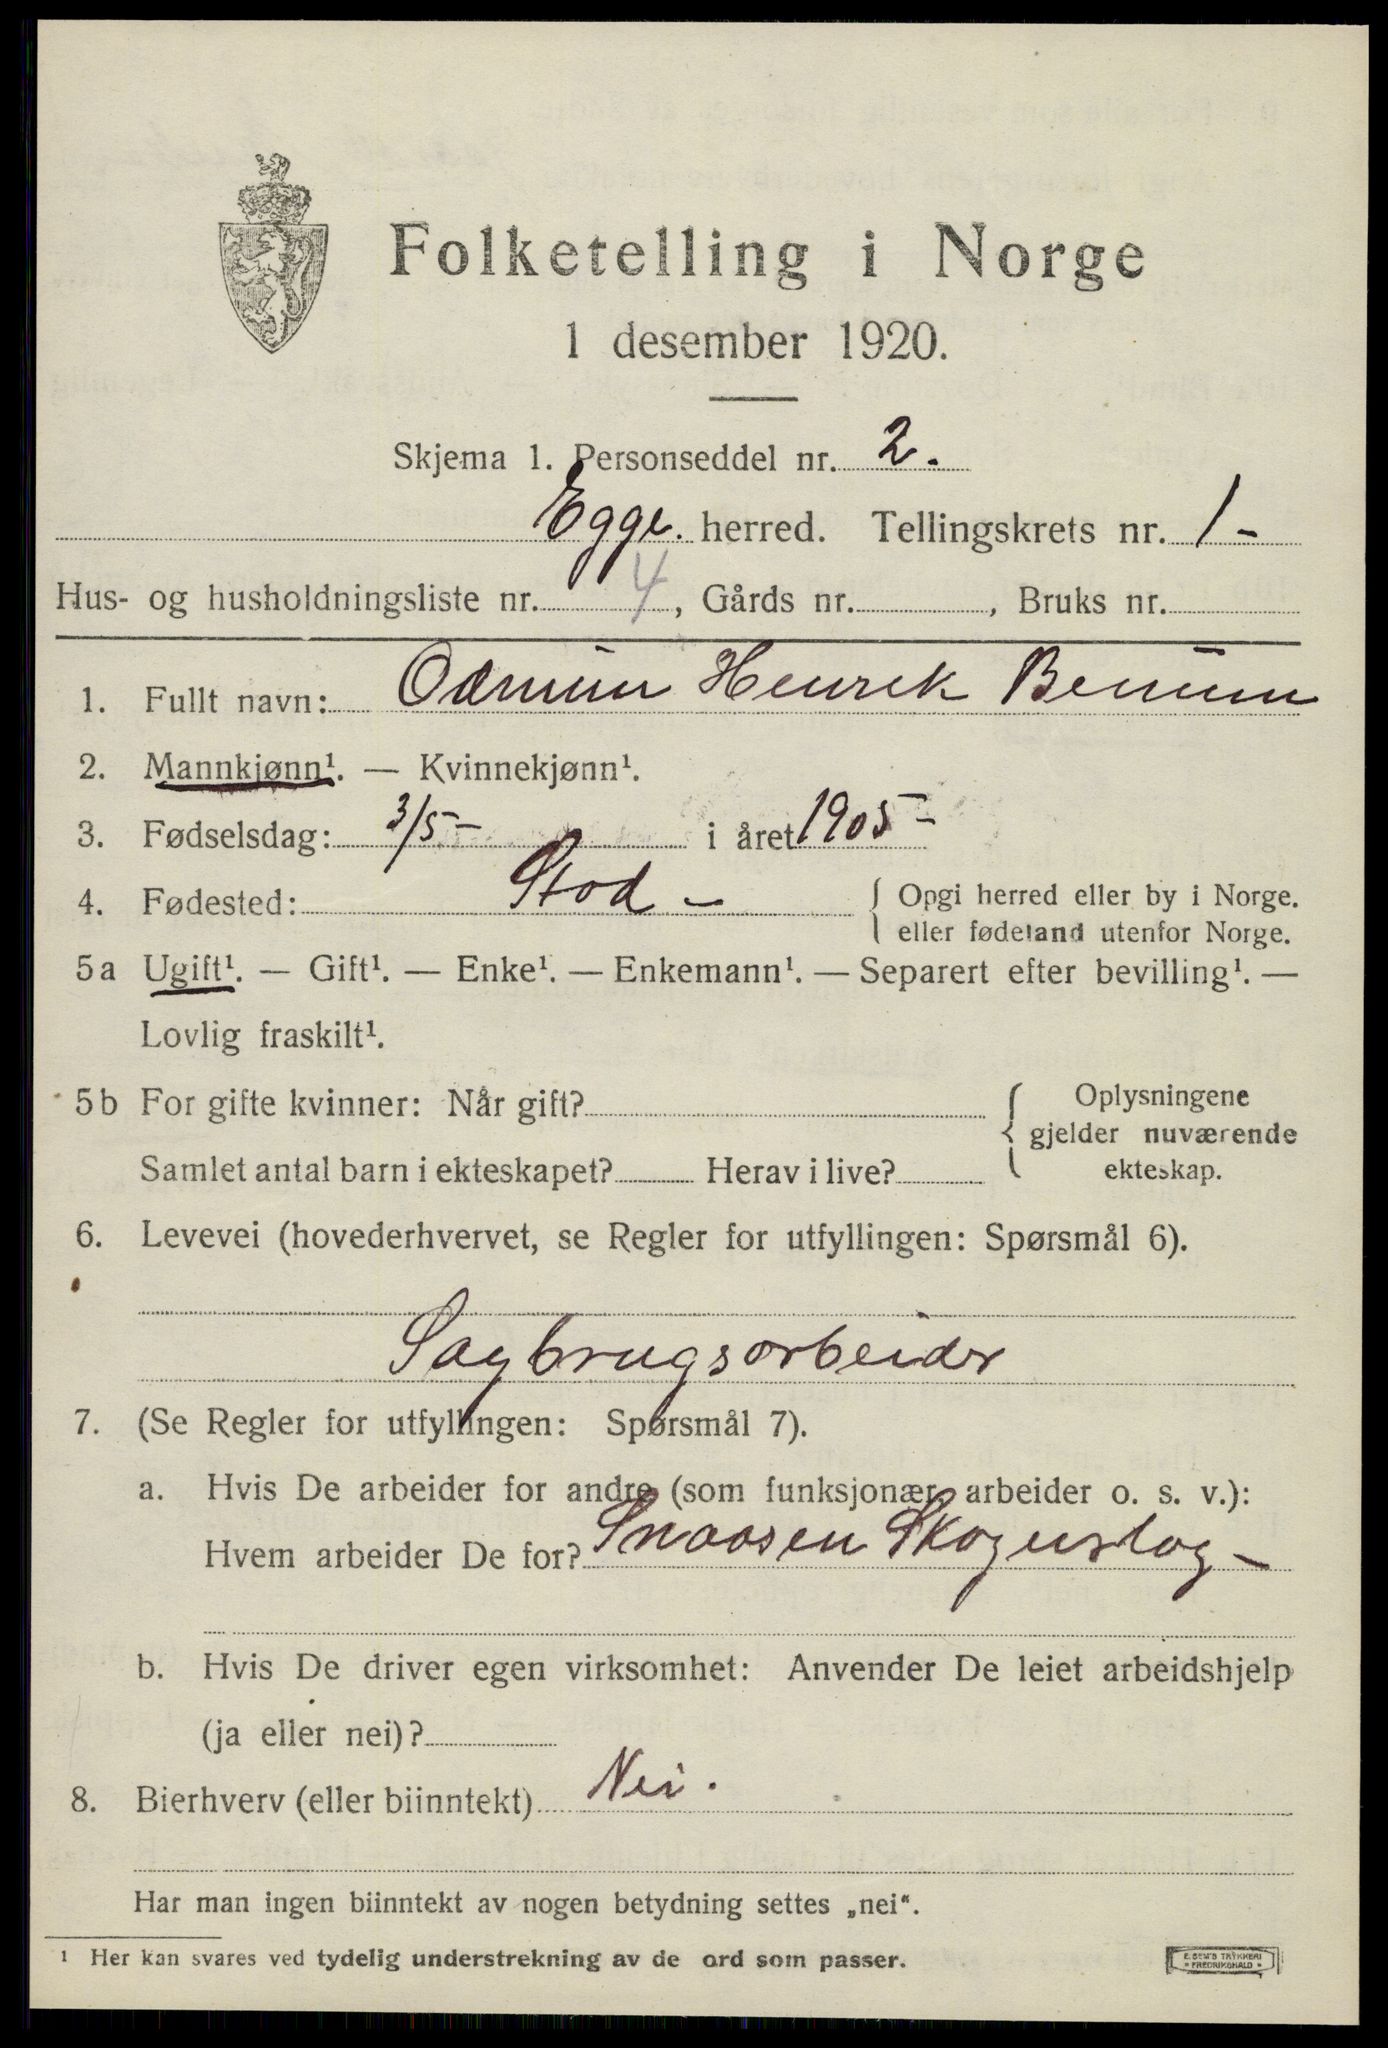 Folketelling i Norge
1 desember 1920.
Skjema 1. Personseddel nr. 2.
Egge. herred. Tellingskrets nr. 1-
Hus- og husholdningsliste nr. 4, Gårds nr. , Bruks nr.
1. Fullt navn: Henrik
2. Mannkjønn¹. — Kvinnekjønn¹.
3. Fødselsdag: 3/5- i året 1905-
4. Fødested: Stod - { Opgi herred eller by i Norge.
eller fødeland utenfor Norge.
5a Ugift¹. — Gift¹. — Enke¹. — Enkemann¹. — Separert efter bevilling¹. —
Lovlig fraskilt¹.
5b For gifte kvinner: Når gift? { Oplysningene
gjelder nuværende
Samlet antal barn i ekteskapet? Herav i live? ekteskap.
6. Levevei (hovederhvervet, se Regler for utfyllingen: Spørsmål 6).
Sagbrugsarbeider
7. (Se Regler for utfyllingen: Spørsmål 7).
a. Hvis De arbeider for andre (som funksjonær, arbeider o. s. v.):
Hvem arbeider De for? Snaasen Skogenslag -
b. Hvis De driver egen virksomhet: Anvender De leiet arbeidshjelp
(ja eller nei)?
8. Bierhverv (eller biinntekt) Nei.
Har man ingen biinntekt av nogen betydning settes „nei“.
¹ Her kan svares ved tydelig understrekning av de ord som passer.
E. SEM'S TRYKKERI
* FREDRIKSHALD *